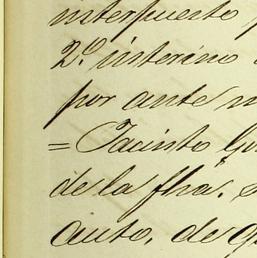 interpuesto
2º interino
por ante
= Jacinto
de la fha.
auto, de